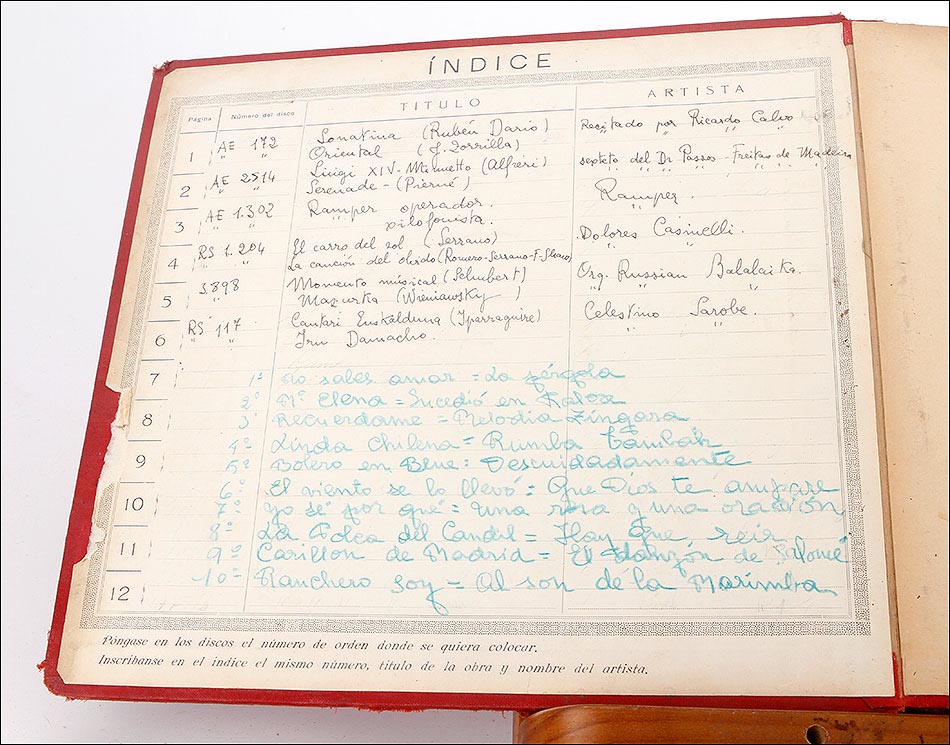 ÍNDICE
Página Número del disco TITULO ARTISTA
1 AE 172 Sonatina (Rubén Dario) Recitado por Ricardo Calvo
" " Oriental (J. Zorrilla) " " " "
2 AE 2514 Luigi XIV - Minuetto (Alfieri) sexteto del Dr Passos - Freitas de Madeira
" " Serenade - (Pierné) " " " " " "
3 AE 1.302 Ramper operador. Ramper.
" " xilofonista. "
4 RS 1.204 El carro del sol (Serrano) Dolores Casinelli.
" " La canción del olvido (Romero-Serrano-F-Shaw) " "
5 S.898 Momento musical (Schubert) Orq. Russian Balalaika.
" Mazurka (Wieniawsky) " " "
6 RS 117 Cantari Euskalduna (Iparraguire) Celestino Sarobe.
" " Iru Damacho. " "
7 1º No sabes amar = La pérgola
2º Mª Elena = Sucedió en
8 3º Recuerdame = Melodia Zíngara
4º Linda Chilena = Rumba Tambah
9 5º Bolero en Blue = Descuidadamente
10 6º El viento se lo llevó = Que Dios te ampare
7º yo sé por qué = una rosa y una oración
11 8º La Polca del Candil = Hay que reir
9º Carillon de Madrid = El danzón de Salomé
12 10º Ranchero soy = Al son de la Marimba
Póngase en los discos el número de orden donde se quiera colocar.
Inscríbanse en el índice el mismo número, título de la obra y nombre del artista.